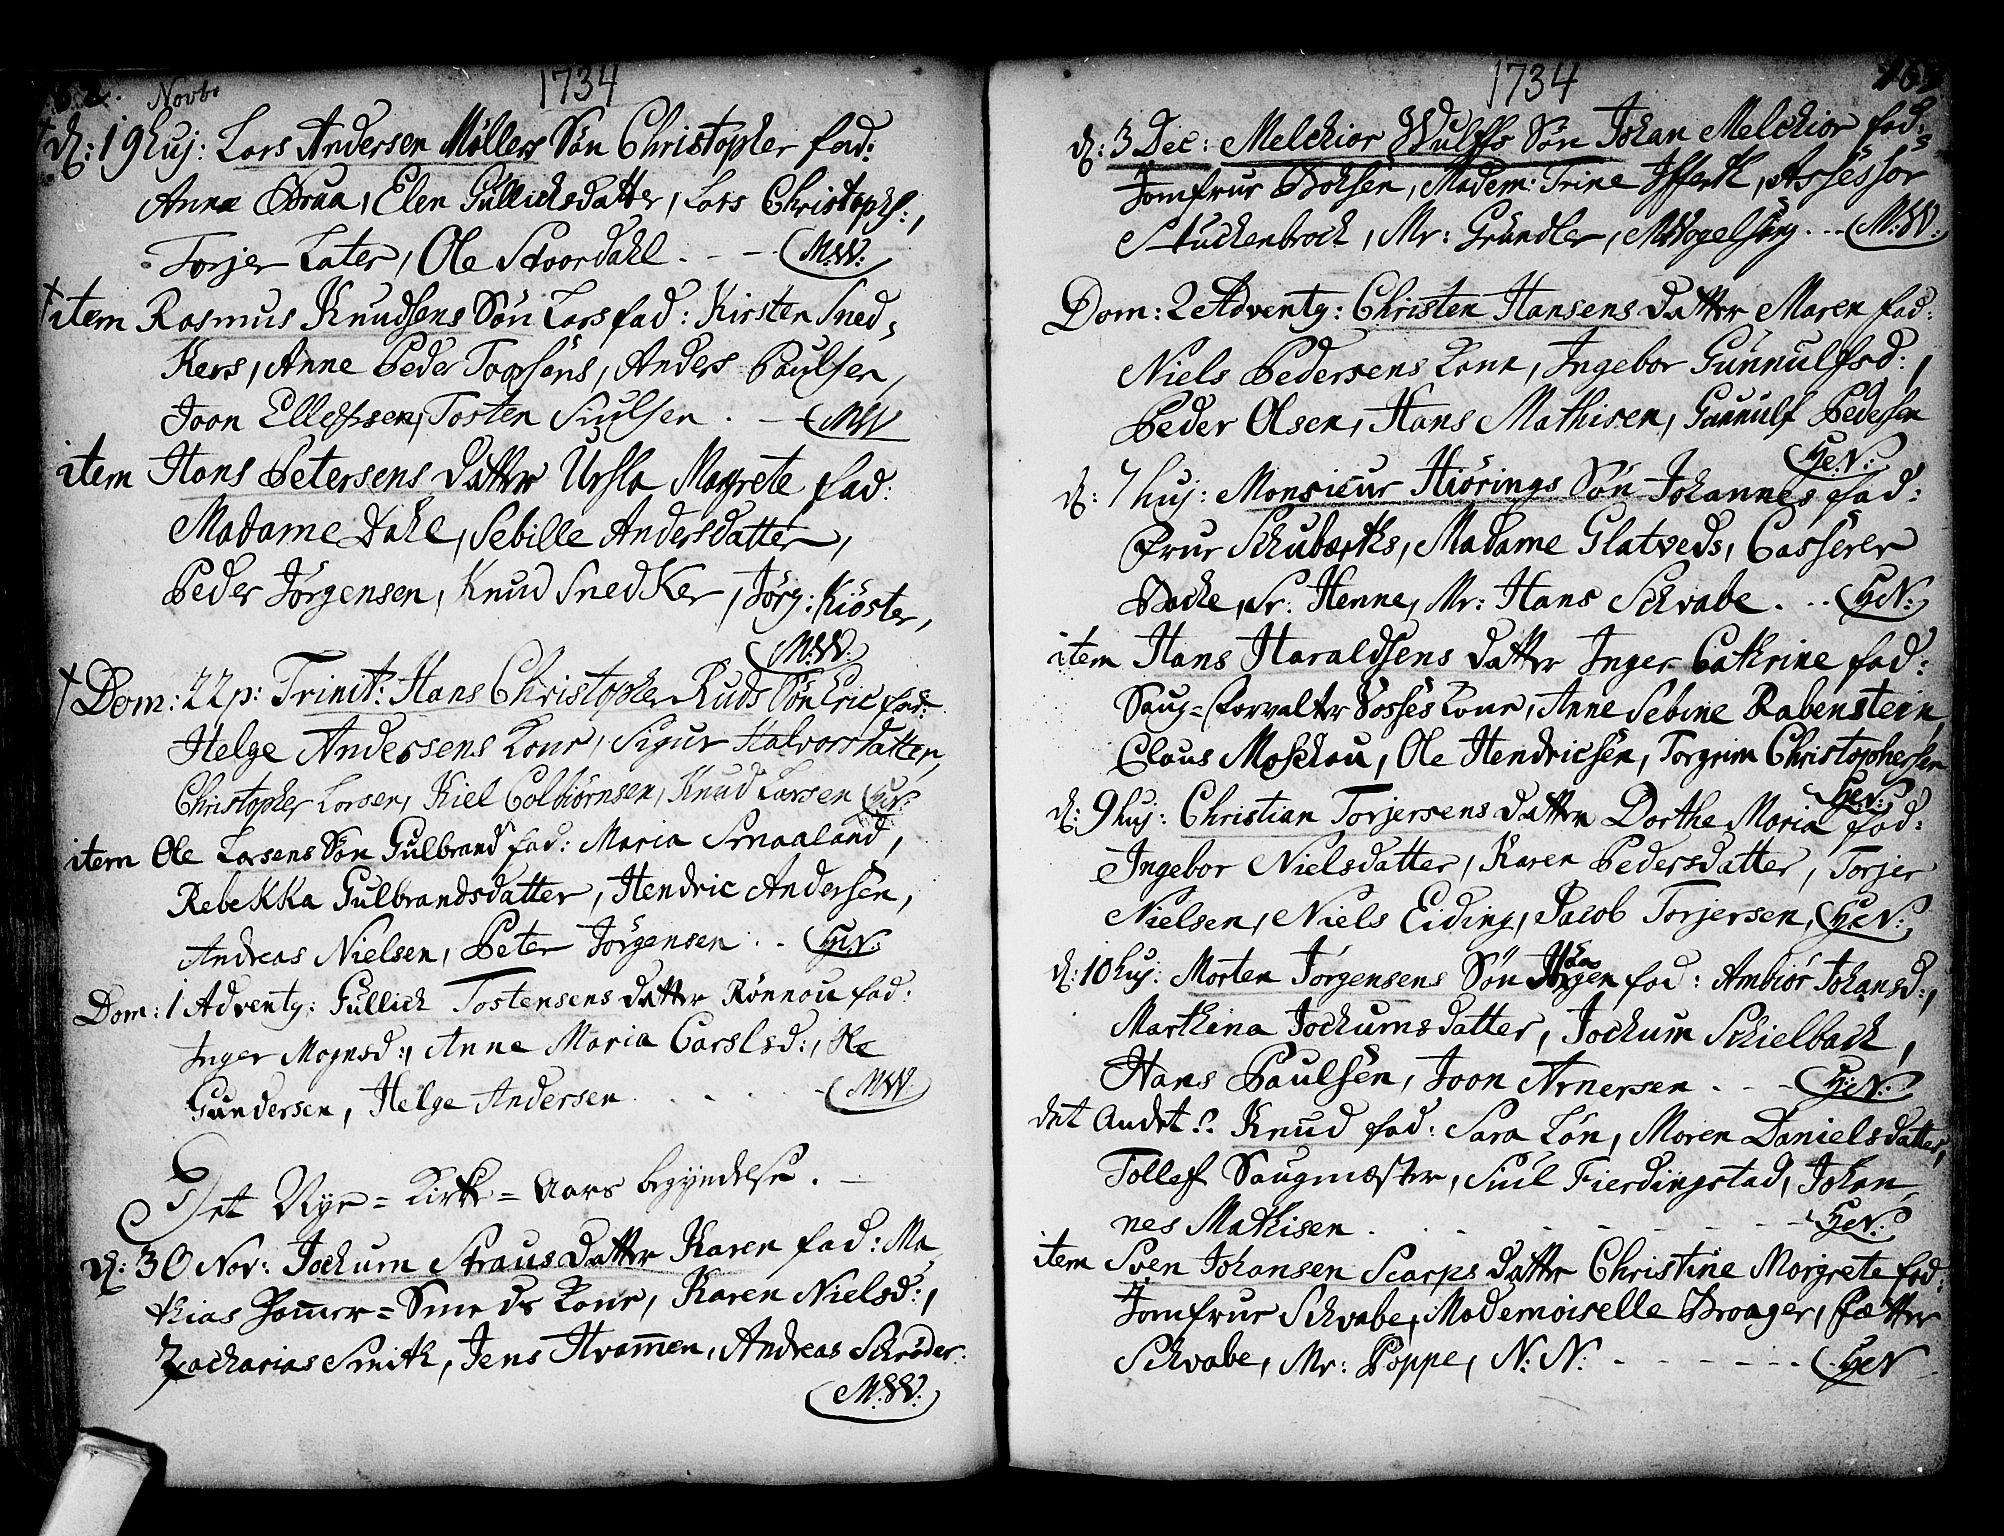 162. Novbr 1734
† d: 19 huj: Lars Andersen Møllers Søn Christopher fad:
Anna Braa, Elen Gullichsdatter, Lars Christophs:,
Torjer Later, Ole Stoordahl. - - (M:W:)
† item Rasmus Knudsens Søn Lars fad: Kirsten Sned=
Kers, Anne Peder Toorsøns, Anders Paulsen,
Joon Ellefssen, Tosten Siulsen. - (MW
item Hans Petersens datter Ursla Magrete fad:
Madame Dahl, Sebille Andersdatter,
Peder Jørgensen, Knud SnedKer, Jørg: Kiöster,
(M:W:)
† Dom: 22 p: Trinit: Hans Christopher Ruds Søn Eric fad:
Helge Andersens Kone, Sigur Halvorsdatter,
Christopher Larsen, Kiel Colbiørnsen, Knud Larsen (HcN:)
item Ole Larsens Søn Gulbrand fad: Maria Smaaland,
RebeKKa Gulbrandsdatter, Hendric Andersen,
Andreas Nielsen, Peter Jørgensen. . (HcN:)
Dom: 1 Adventy: Gullich Tostensens datter Rönnou fad:
Inger Mognsd:, Anne Maria Carslsd:, Ole
Gundersen, Helge Andersen . . . . . (MW
Det Nye = Kirke = Aars begyndelse. -
d: 30 Nov: Jochum Straus datter Karen fad: Ma
thias Hamer = Smeds Kone, Karen Nielsd:,
Zacharias Smith, Jens Hvam̄en, Andreas Schrøder.
(M:W:)
1734 163
d: 3 Dec: Melchior Wulffs Søn Johan Melchior fad:
Jomfrue Boksen, Madem: Trine Ifferth, Assessor
Stuckenbrock, Mr: Gründler, M: Vogelsang. . . (M:W:
Dom: 2 Adventy: Christen Hansens datter Maren fad:
Niels Pedersens Kone, Ingebor Gunnulfsd:,
Peder Olsen, Hans Mathisen, Gunnulf Pedersen
(HcN:)
d: 7 huj: Monsieur Hiörings Søn Johannes fad:
Frue Schubærths, Madame Glatveds, Casserer
Bache, Sr: Henne, Mr: Hans Schvabe. . . (HcN:)
item Hans Haraldsens datter Inger Cathrine fad:
Saug=forvalter Vosses Kone, Anne Sebine Rabenstein,
Claus Moschou, Ole Hendrichsen, Torgrim Christophersen
(HcN:)
d: 9 huj: Christian Torjersens datter Dorthe Maria fad:
Ingebor Nielsdatter, Karen Pedersdatter, Torjer
Nielsen, Niels Eiding, Jacob Torjersen, (HcN:
d: 10 huj: Morten Jörgensens Søn Jørgen fad: Ambiör Johansd:,
Marthina Jochumsdatter, Jochum Schielbach,
Hans Paulsen, Joon Arnersen . . . (HcN:)
det Andet S: Knud fad: Sara Lön, Maren Danielsdatter,
Tollef Saugmæster, Siul Fierdingstad, Johan
nes Mathisen . . . . . . . . (HcN:
item Sven Johansen Scarps datter Christine Margrete fad:
Jomfrue Schvabe, Mademoiselle Broager, Fætter
Schvabe, Mr: Poppe, N: N: . - - - - . . (HcN